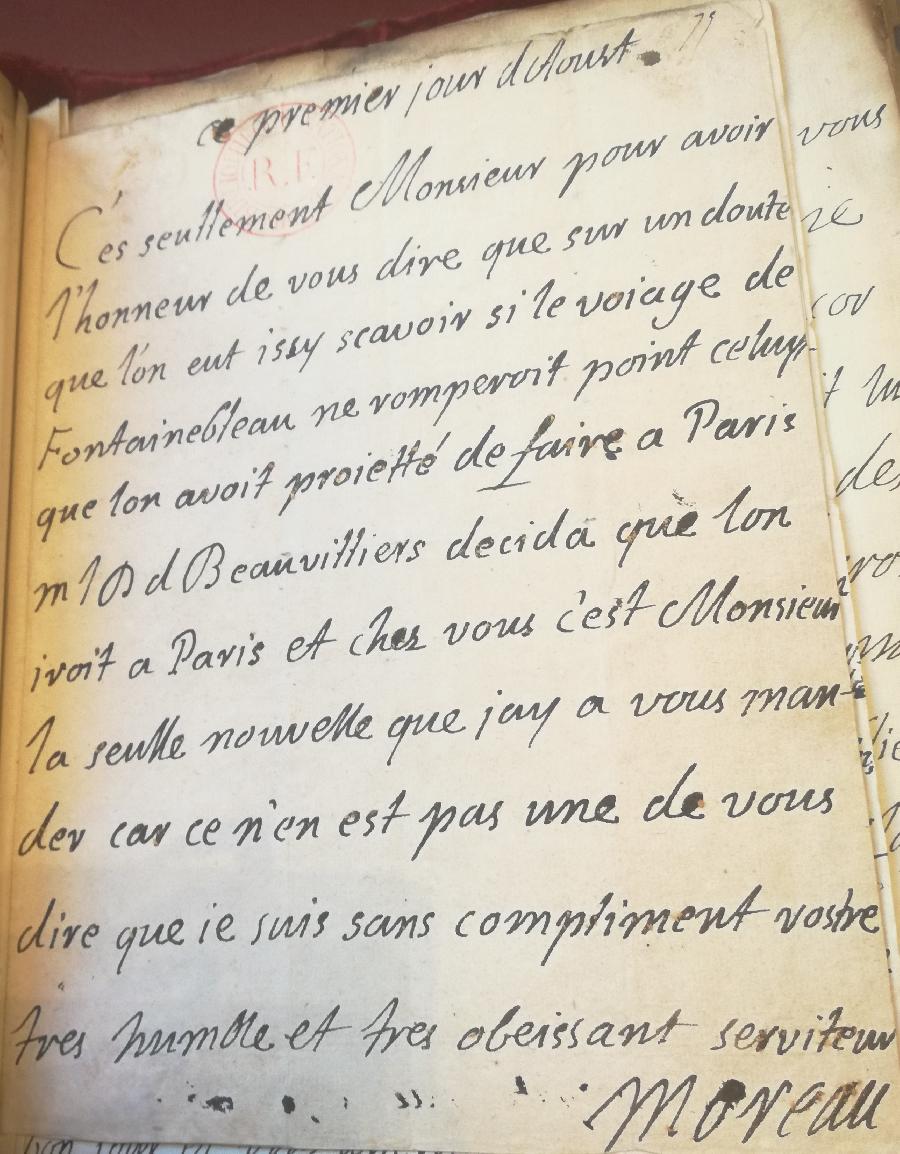 ce premier jour d'Aoust
R.F.
C'es seullement Monsieur pour avoir
l'honneur de vous dire que sur un doute
que l'on eut issy scavoir si le voiage de
Fontainebleau ne romperoit point celuy
que lon avoit proietté de faire a Paris
m l D d Beauvilliers decida que lon
iroit a Paris et chez vous c'est Monsieur
la seulle nouvelle que jay a vous man-
der car ce n'en est pas une de vous
dire que ie suis sans compliment vostre
tres humble et tres obeissant serviteur
Moreau
vous